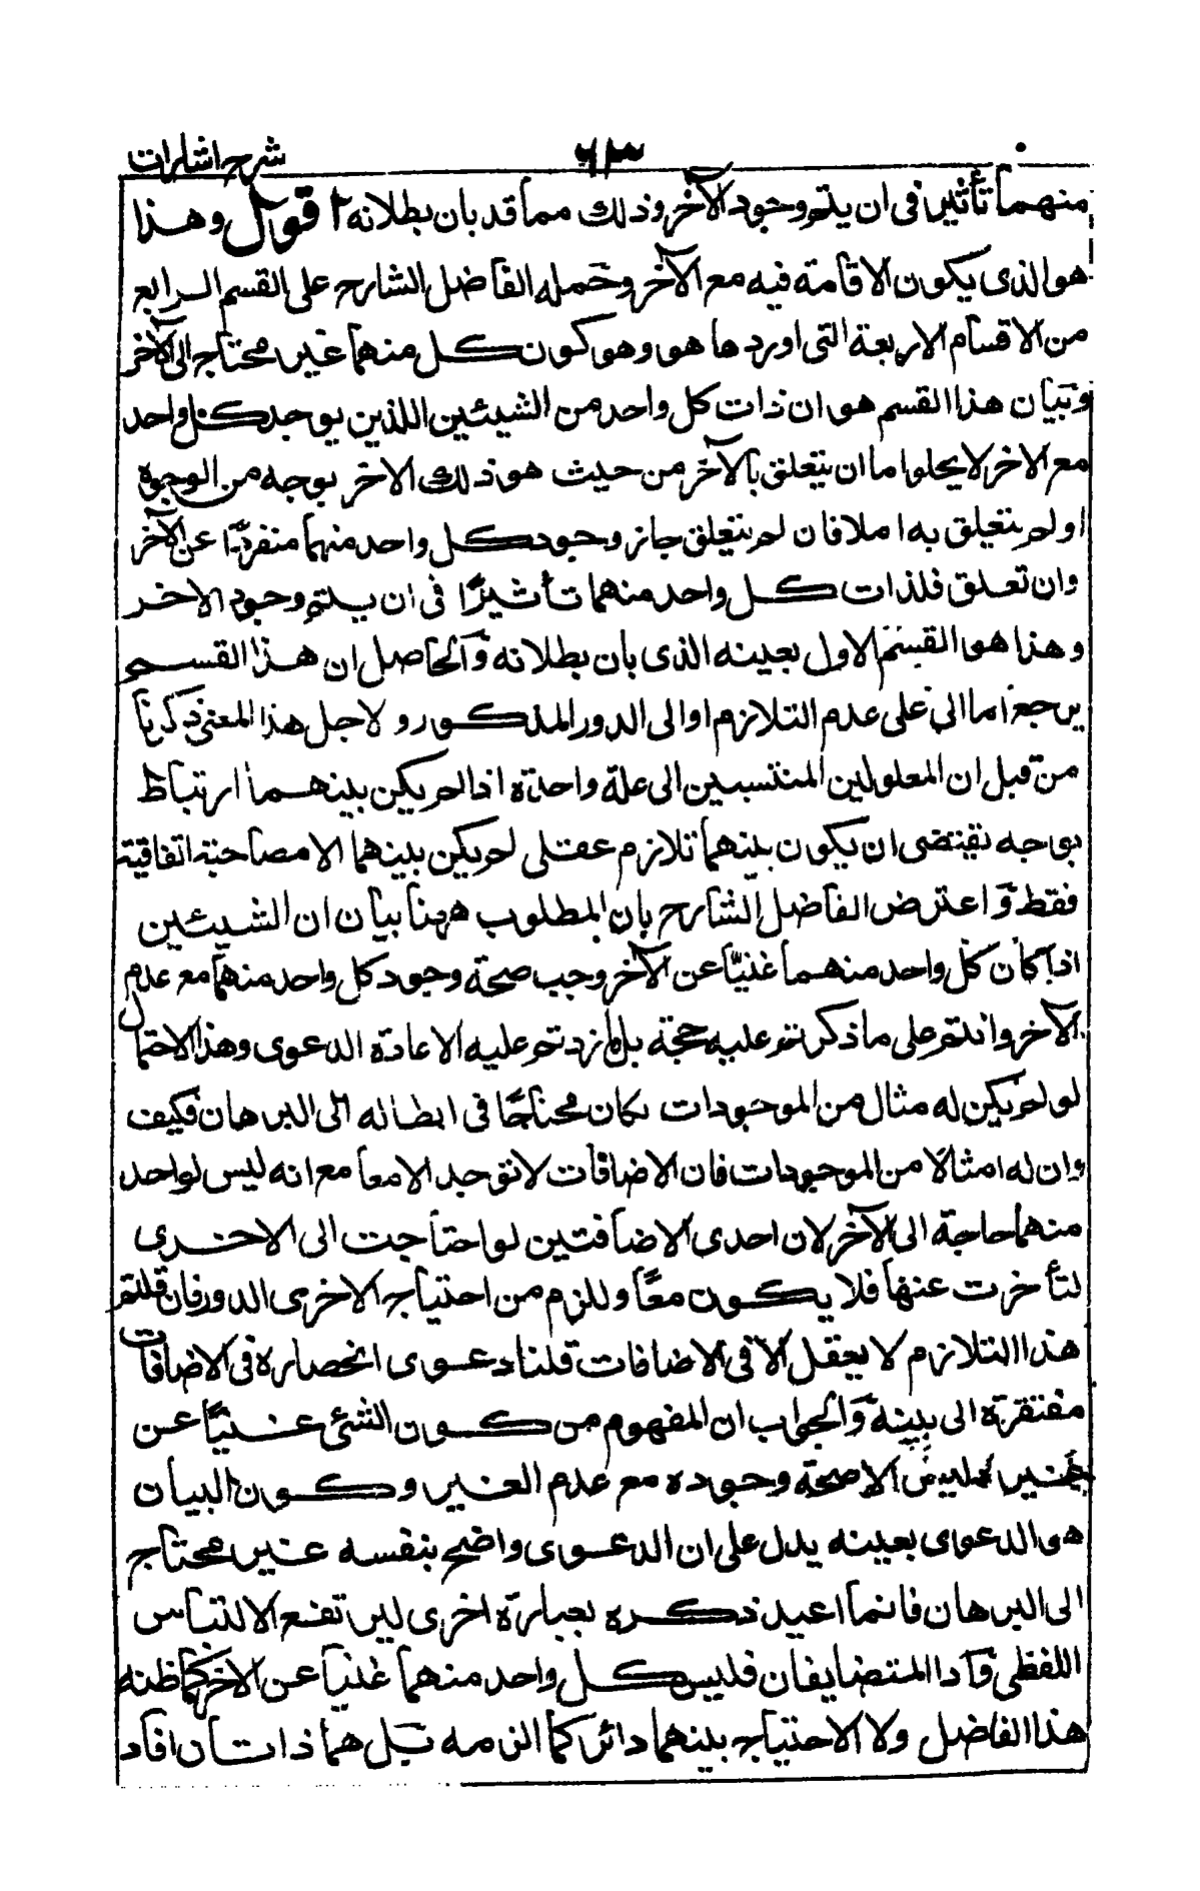 شرح اشارات
منهما تأثير في ان يتم وجود الآخر وذلك مما قد بان بطلانه اقول وهذا
هو الذى يكون الاقامة فيه مع الآخر وحمله الفاضل الشارح على القسم الرابع
من الاقسام الاربعة التى اوردها هو وهو كون كل منهما غير محتاج الى الآخر
وبيان هذا القسم هو ان ذات كل واحد من الشيئين اللذين يوجد كل واحد
مع الاخر لا يخلو اما ان يتعلق بالآخر من حيث هو ذلك الاخر بوجه من الوجوه
او لم يتعلق به املا فان لم يتعلق جاز وجود كل واحد منهما منفردًا عن الآخر
وان تعلق فلذات كل واحد منهما تأثيرًا فى ان يتم وجود الاخر
وهذا هو القسم الاول بعينه الذى بان بطلانه والحاصل ان هذا القسم
يرجع اما الى على عدم التلازم او الى الدور المذكور ولاجل هذا المعنى ذكرنا
من قبل ان المعلولين المنتسبين الى علة واحدة اذا لم يكن بينهما ارتباط
بوجه يقتضى ان يكون بينهما تلازم عقلى لم يكن بينهما الا مصاحبة اتفاقية
فقط واعترض الفاضل الشارح بان المطلوب ههنا بيان ان الشيئين
اذا كان كل واحد منهما غنيّا عن الآخر وجب صحة وجود كل واحد منهما مع عدم
الآخر وانتم على ما ذكرتم عليه حجة بل ما زدتم عليه الا عادة الدعوى وهذا الاحتمال
لو لم يكن له مثال من الموجودات لكان محتاجًا فى ابطاله الى البرهان فكيف
وان له امثالا من الموجودات فان الاضافات لا توجد الا معا مع انه ليس لواحد
منهما حاجة الى الآخر لان احدى الاضافتين لو احتاجت الى الاخرى
لتأخرت عنها فلا يكون معًا وللزم من احتياج الاخرى الدور فان قلتم
هذا التلازم لا يعقل الا فى الاضافات قلنا دعوى انحصاره فى الاضافات
مفتقرة الى بينة والجواب ان المفهوم من كون الشئ غنيًا عن
غيره ليس الا صحة وجوده مع عدم الغير وكون البيان
هى الدعوى بعينه يدل على ان الدعوى واضح بنفسه غير محتاج
الى البرهان فانما اعيد ذكره بعبارة اخرى ليرتفع الالتباس
اللفظى واما المتضايفان فليس كل واحد منهما غنيا عن الاخر كما ظنه
هذا الفاضل ولا الاحتياج بينهما دائر كما الزمه بل هما ذاتان افاد